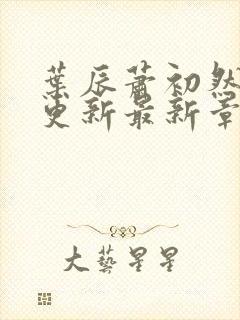 葉辰蕭初然
更新最新章
大藝星星